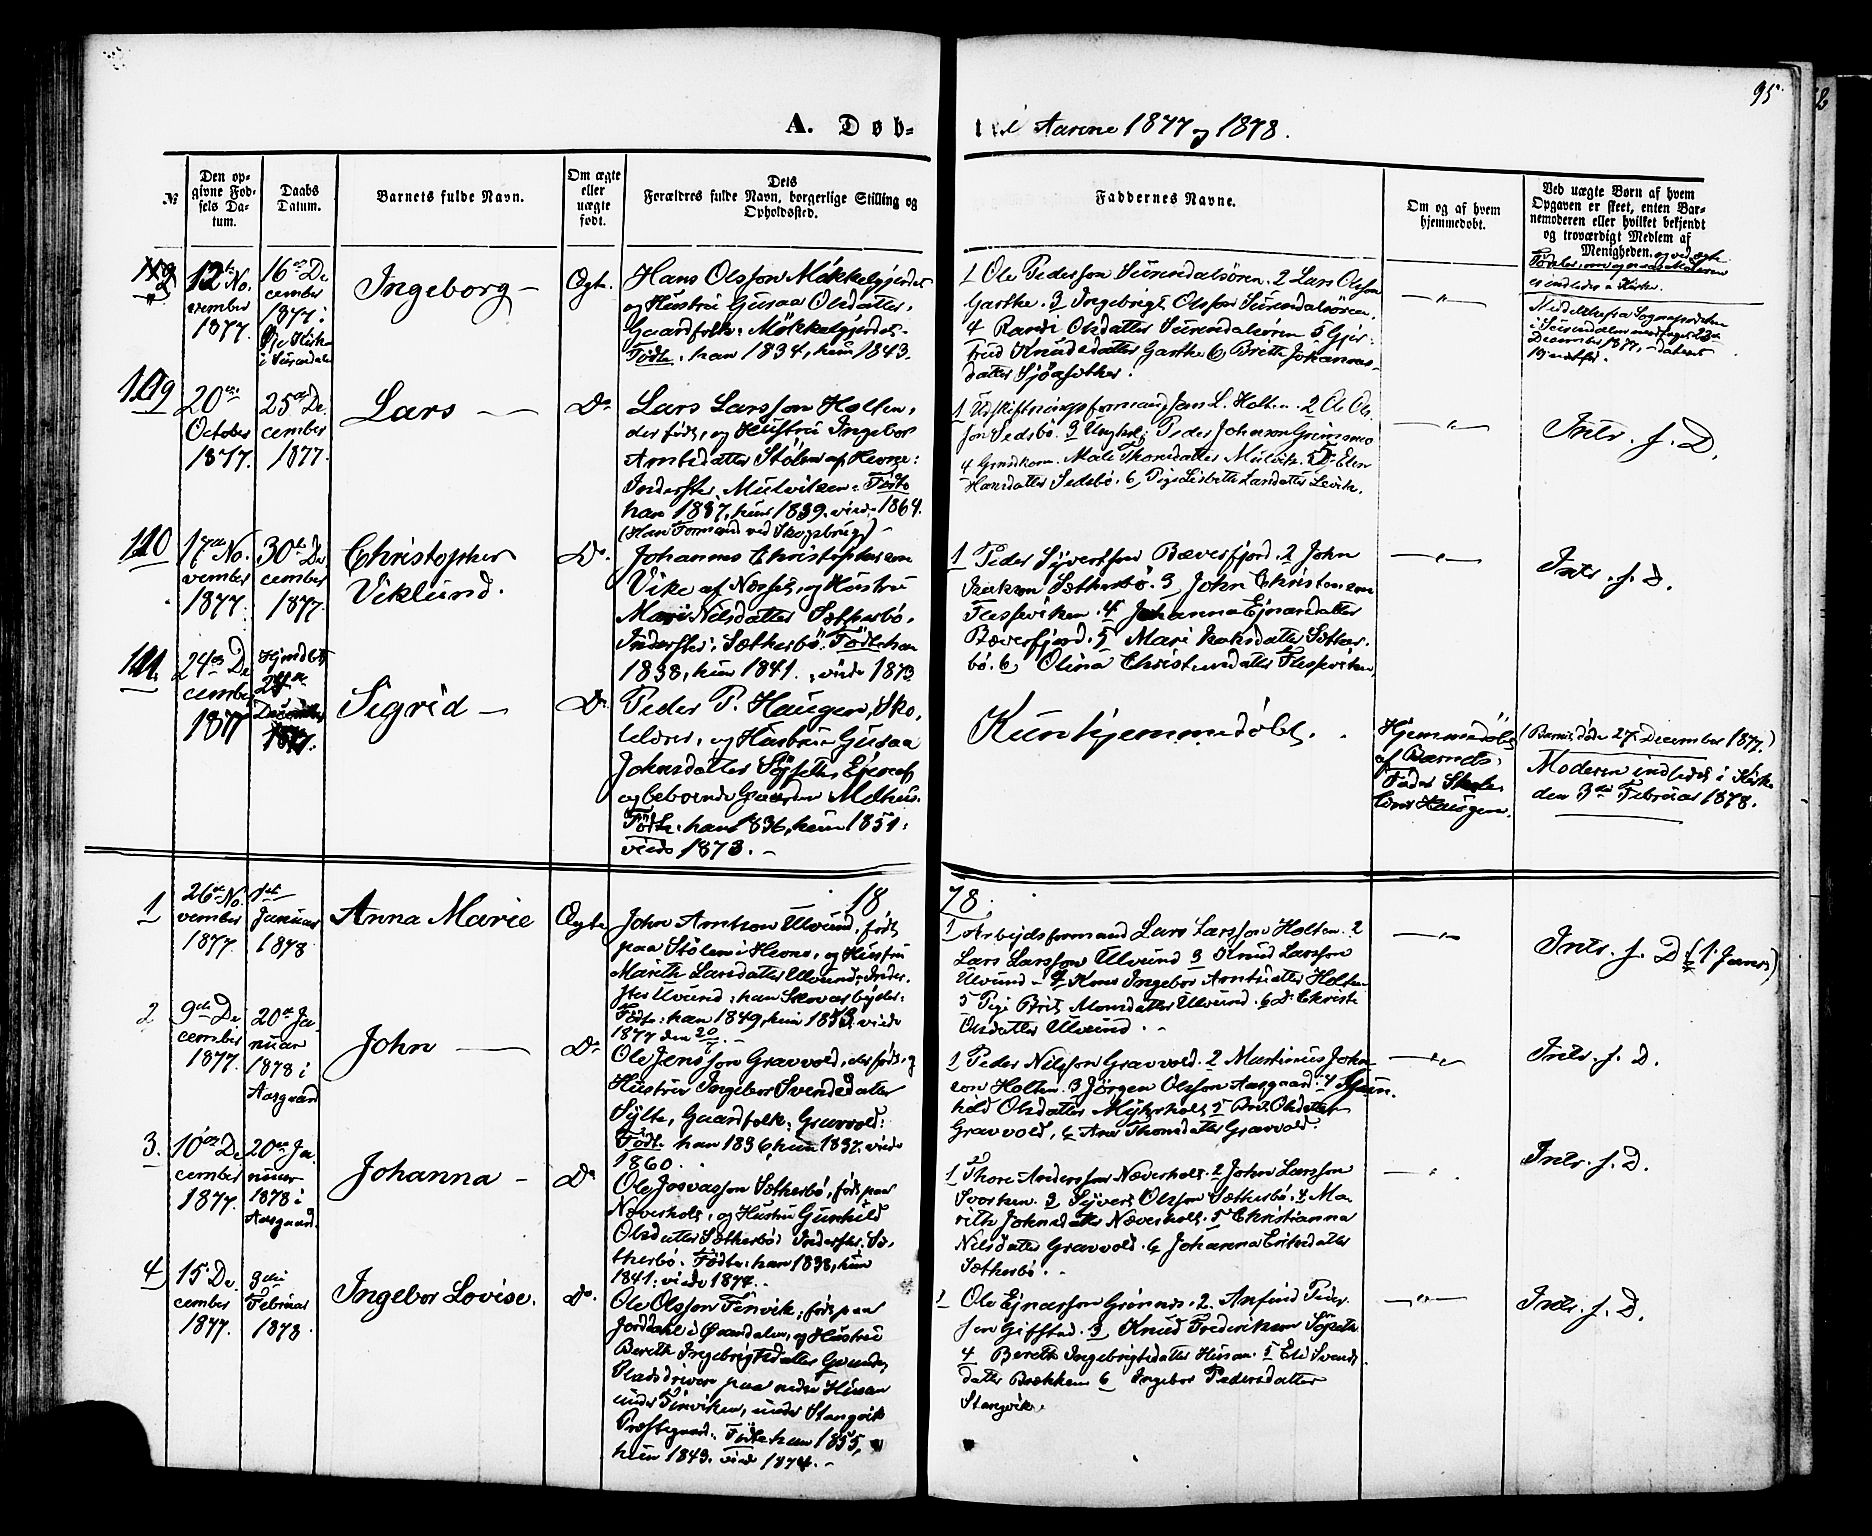 95.
A. Døb-
te i Aarene 1877 og 1878.
№
Den op-
givne Fød-
sels Da-
tum.
Daabs
Datum.
Barnets fulde Navn.
Om ægte
eller
uægte
født.
Dets
Forældres fulde Navn, borgerlige Stilling og
Opholdssted.
Faddernes Navne.
Om og af hvem
hjemmedøbt.
Ved uægte Børn af hvem
Opgaven er skeet, enten Bar-
nemoderen eller hvilket bekjendt
og troværdigt Medlem af
Menigheden.
12te No-
vember
1877.
16de De
cember
1877 i
Ingeborg –
Ægte.
Hans Olsson Møkkelgjerdet
og Hustru Guraa Olsdatter,
Gaardfolk: Møkkelgjerdet –
Fødte: han 1834, hun 1843.
1 Ole Pedersson Surendalsören. 2 Lars Olsson
Garthe. 3 Ingebrigt Olsson Surendalsören.
4 Randi Olsdatter Surendalsören. 5 Gjer-
trud Knudsdatter Garthe 6 Brith Johannes-
datter Sjöasæther.
– " –
December 1877, – dateret
109
20de
October
1877.
25de De
cember
1877.
Lars –
Do
Lars Larsson Holten,
der født, og Hustru Ingebor
Arntsdatter Stölen af Hevne:
Inderster, Mulviken. Fødte
han 1837, hun 1839. viede 1864.
(Han Formand ved Skogsbrug) –
1 Udskiftningsformand Jens L. Holten. 2 Ole Ols-
son Sedsbö. 3 Ungkarl Peder Johnson Grimsmo
4 Grmdkone Mali Thoresdatter Mulvik. 5 Do Elen
Hansdatter Sedsbö. 6 Pige Lisbeth Larsdatter Levik.
– " –
Intr. s. D.
110
17de No-
vember
1877.
30te De
cember
1877.
Christopher
Viklund.
Do.
Johannes Christophersen
Vike af Næsset, og Hustru
Mari Nilsdatter Sætherbö,
Inderster: Sætherbö. Fødte han
1838, hun 1841. viede 1873
1 Peder Syvertsen Bæverfjord. 2 John
Iversen Sætherbö. 3 John Christensen
Flessviken. 4 Johanna Ejnarsdatter
Bæverfjord. 5 Mari Larsdatter Sæther-
bö. 6 Olina Christensdatter Flessviken
– " –
Intr. s. D.
111.
24de De
cember
1877
Hjemdøbt
24de
December
1877.
Sigrid –
Do
Peder P. Haugen, Sko-
lelærer, og Hustru Guraa
Johnsdatter Sjösetter Ejere af
og beboende Gaarden Melhus.
Fødte: han 1836, hun 1851:
viede 1873. –
Kun hjemmedöbt.
Hjemmedöbt
af Barnets
Fader Skole-
lærer Haugen.
(Barnet døde 27. December 1877.)
Moderen indledet i Kirke
den 3die Februar 1878.
1878.
1
26de No-
vember
1877.
1ste
Januar
1878
Anna Marie
Ægte
John Arntson Ulvund, født
paa Stölen i Hevne, og Hustru
Marith Larsdatter Ulvund: Inder-
ster Ulvund: han Skovarbejder:
Fødte: han 1849, hun 1853, viede
1877 den 20/7. –
1 Arbejdsformand Lars Larsson Holten. 2
Lars Larsson Ulvund 3 Knud Larsson
Ulvund – 4 Kone Ingebor Arntsdatter Holten
5 Pige Brit Monsdatter Ulvund. 6 Do Christi
Olsdatter Ulvund. –
– " –
Intr. s. D. (1. Januar)
2
9de De
cember
1877.
20de Ja-
nuar
1878 i
Aasgaard
John –
Do
Ole Jensson Gravvold, der født, og
Hustru Ingebor Svendsdatter
Sylte, Gaardfolk: Gravvold:
Fødte han 1836, hun 1837. viede
1860.
1 Peder Nilsson Gravvold. 2 Martinus John-
son Holten. 3 Jörgen Olsson Aasgaard. 4 Gun-
hild Olsdatter Myhrholt 5 Brit Olsdatter
Gravvold, 6 Ane Thoresdatter Gravvold
– " –
Intr. s. D.
3.
10de De
cember
1877.
20de Ja-
nuar
1878 i
Aasgaard.
Johanna –
Do
Ole Josvasson Sætherbö, født paa
Næverholt, og Hustru Gunhild
Olsdatter Sætherbö Inderster: Sæ-
therbö. Fødte: han 1838, hun
1841: viede 1874. –
1 Thore Andersson Næverholt. 2 John Larsson
Svorken. 3 Syvert Olsson Sætherbö. 4 Ma-
rith Johnsdatter Næverholt. 5 Christianna
Nilsdatter Gravvold. 6 Johanna Eriksdatter
Sætherbö. –
– " –
Intr. s. D.
4
15. De
cember
1877.
3die
Februar
1878.
Ingebor Lovise.
Do.
Ole Olsson Finvik, født paa
Jorddahl i Öxendalen, og Hustru
Bereth Ingebrigtsdatter
Pladsdriver paa nedre Husan
under Finviken, under Stangvik
Præstegaard. Fødte han 1855,
hun 1843. viede 1874. –
1 Ole Ejnarsson Grönnes. 2. Anfind Peder-
sen Gifstad. 3 Knud Frederiksen Söyset
4 Bereth Ingebrigtsdatter Husan. 5 Eli Svends
datter Brækken 6 Ingebor Pedersdatter
Stangvik.
– " –
Intr. s. D.